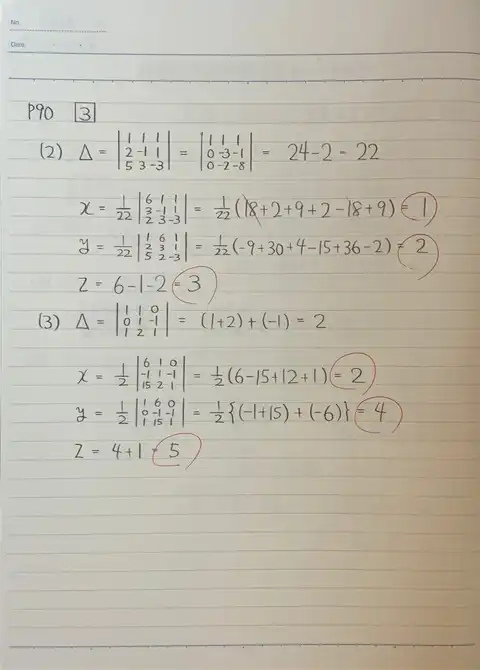 No.
Date
P90 3
(2) Δ = |1 1 1; 2 -1 1; 5 3 -3| = |1 1 1; 0 -3 -1; 0 -2 -8| = 24-2 - 22
x = 1/22 |6 1 1; 3 -1 1; 2 3 -3| = 1/22 (18+2+9+2-18+9) = 1
y = 1/22 |1 6 1; 2 3 1; 5 2 -3| = 1/22 (-9+30+4-15+36-2) = 2
z = 6-1-2 = 3
(3) Δ = |1 1 0; 0 1 -1; 1 2 1| = (1+2)+(-1) = 2
x = 1/2 |6 1 0; -1 1 -1; 15 2 1| = 1/2 (6-15+12+1) = 2
y = 1/2 |1 6 0; 0 -1 -1; 1 15 1| = 1/2 {(-1+15)+(-6)} = 4
z = 4+1 = 5